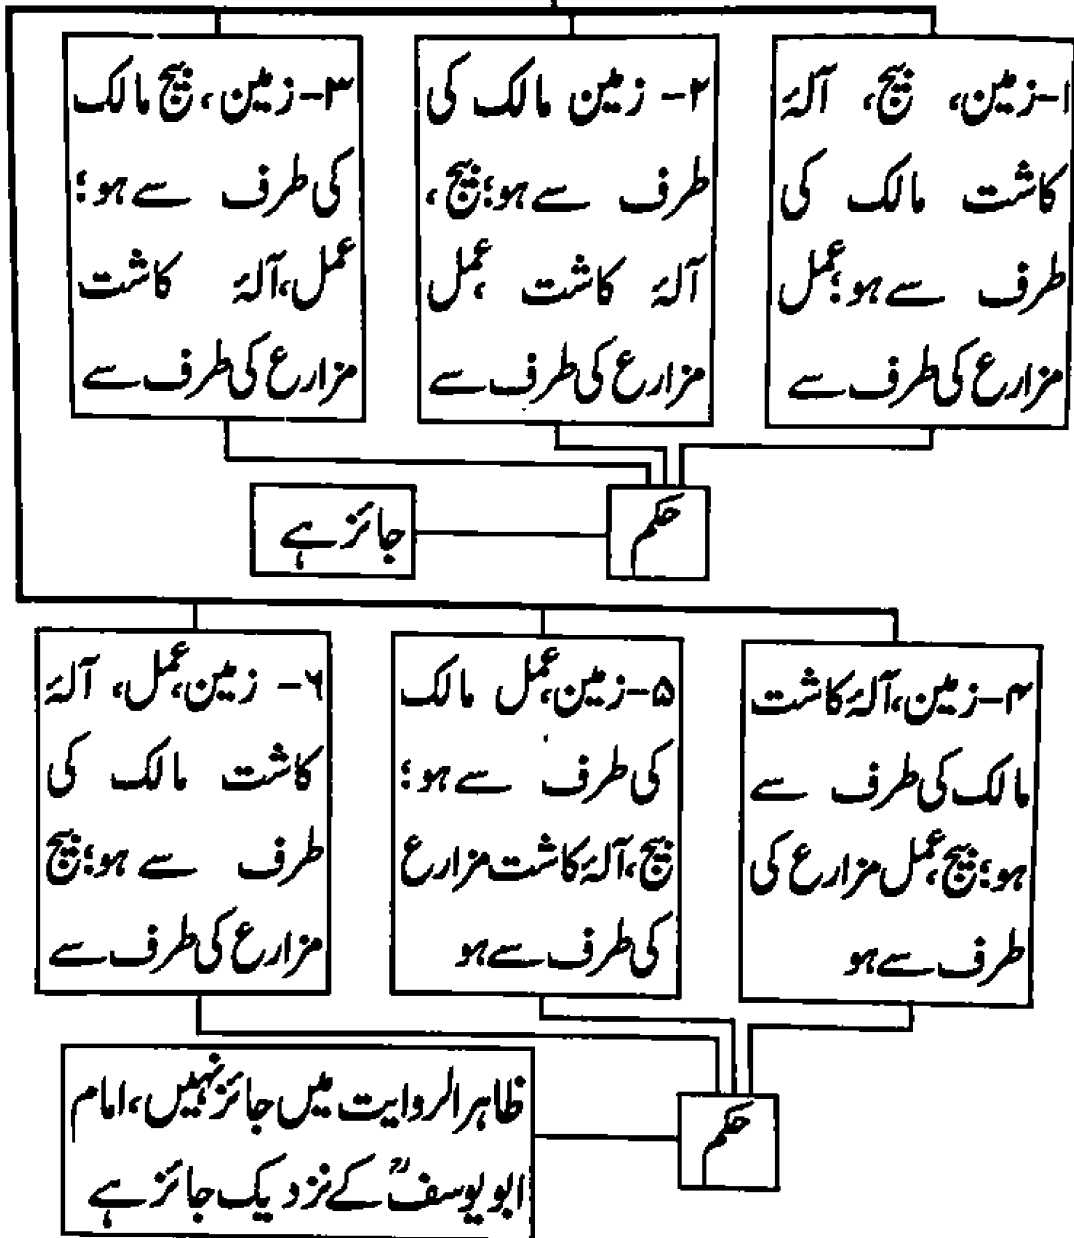 ۱-زمین، بیج، آلۂ
کاشت مالک کی
طرف سے ہو؛عمل
مزارع کی طرف سے
۲- زمین مالک کی
طرف سے ہو؛بیج،
آلۂ کاشت ،عمل
مزارع کی طرف سے
۳-زمین، بیج مالک
کی طرف سے ہو؛
عمل،آلۂ کاشت
مزارع کی طرف سے
حکم
جائز ہے
۴-زمین،آلۂ کاشت
مالک کی طرف سے
ہو؛بیج،عمل مزارع کی
طرف سے ہو
۵-زمین،عمل مالک
کی طرف سے ہو؛
بیج،آلۂ کاشت مزارع
کی طرف سے ہو
۶- زمین،عمل، آلۂ
کاشت مالک کی
طرف سے ہو؛بیج
مزارع کی طرف سے
حکم
ظاہر الروایت میں جائز نہیں،امام
ابو یوسفؒ کے نزدیک جائز ہے